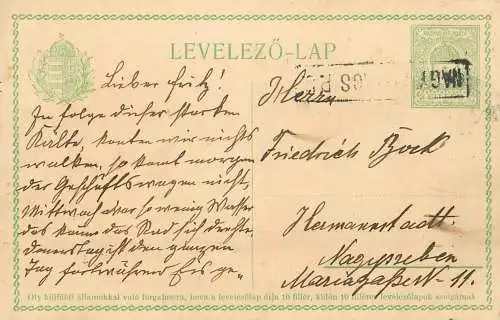 LEVELEZŐ-LAP
Lieber Fritz!
In folge dieser starken
Kälte, konten wir nichts
walken, so komt morgen
der Geschäftswagen nicht,
Mittwoch war so wenig Wasser
das kaum das Rad sich drehte
Donerstag ist den ganzen
Tag fortwährend Eis ge-
Herrn
Friedrich Bock
Hermannstadt
Nagyszeben
Mariagaße N- 11.
Oly külföldi államokkal való forgalomra, hova a levelezőlap díja 10 fillér, külön 10 filléres levelezőlapok szolgálnak